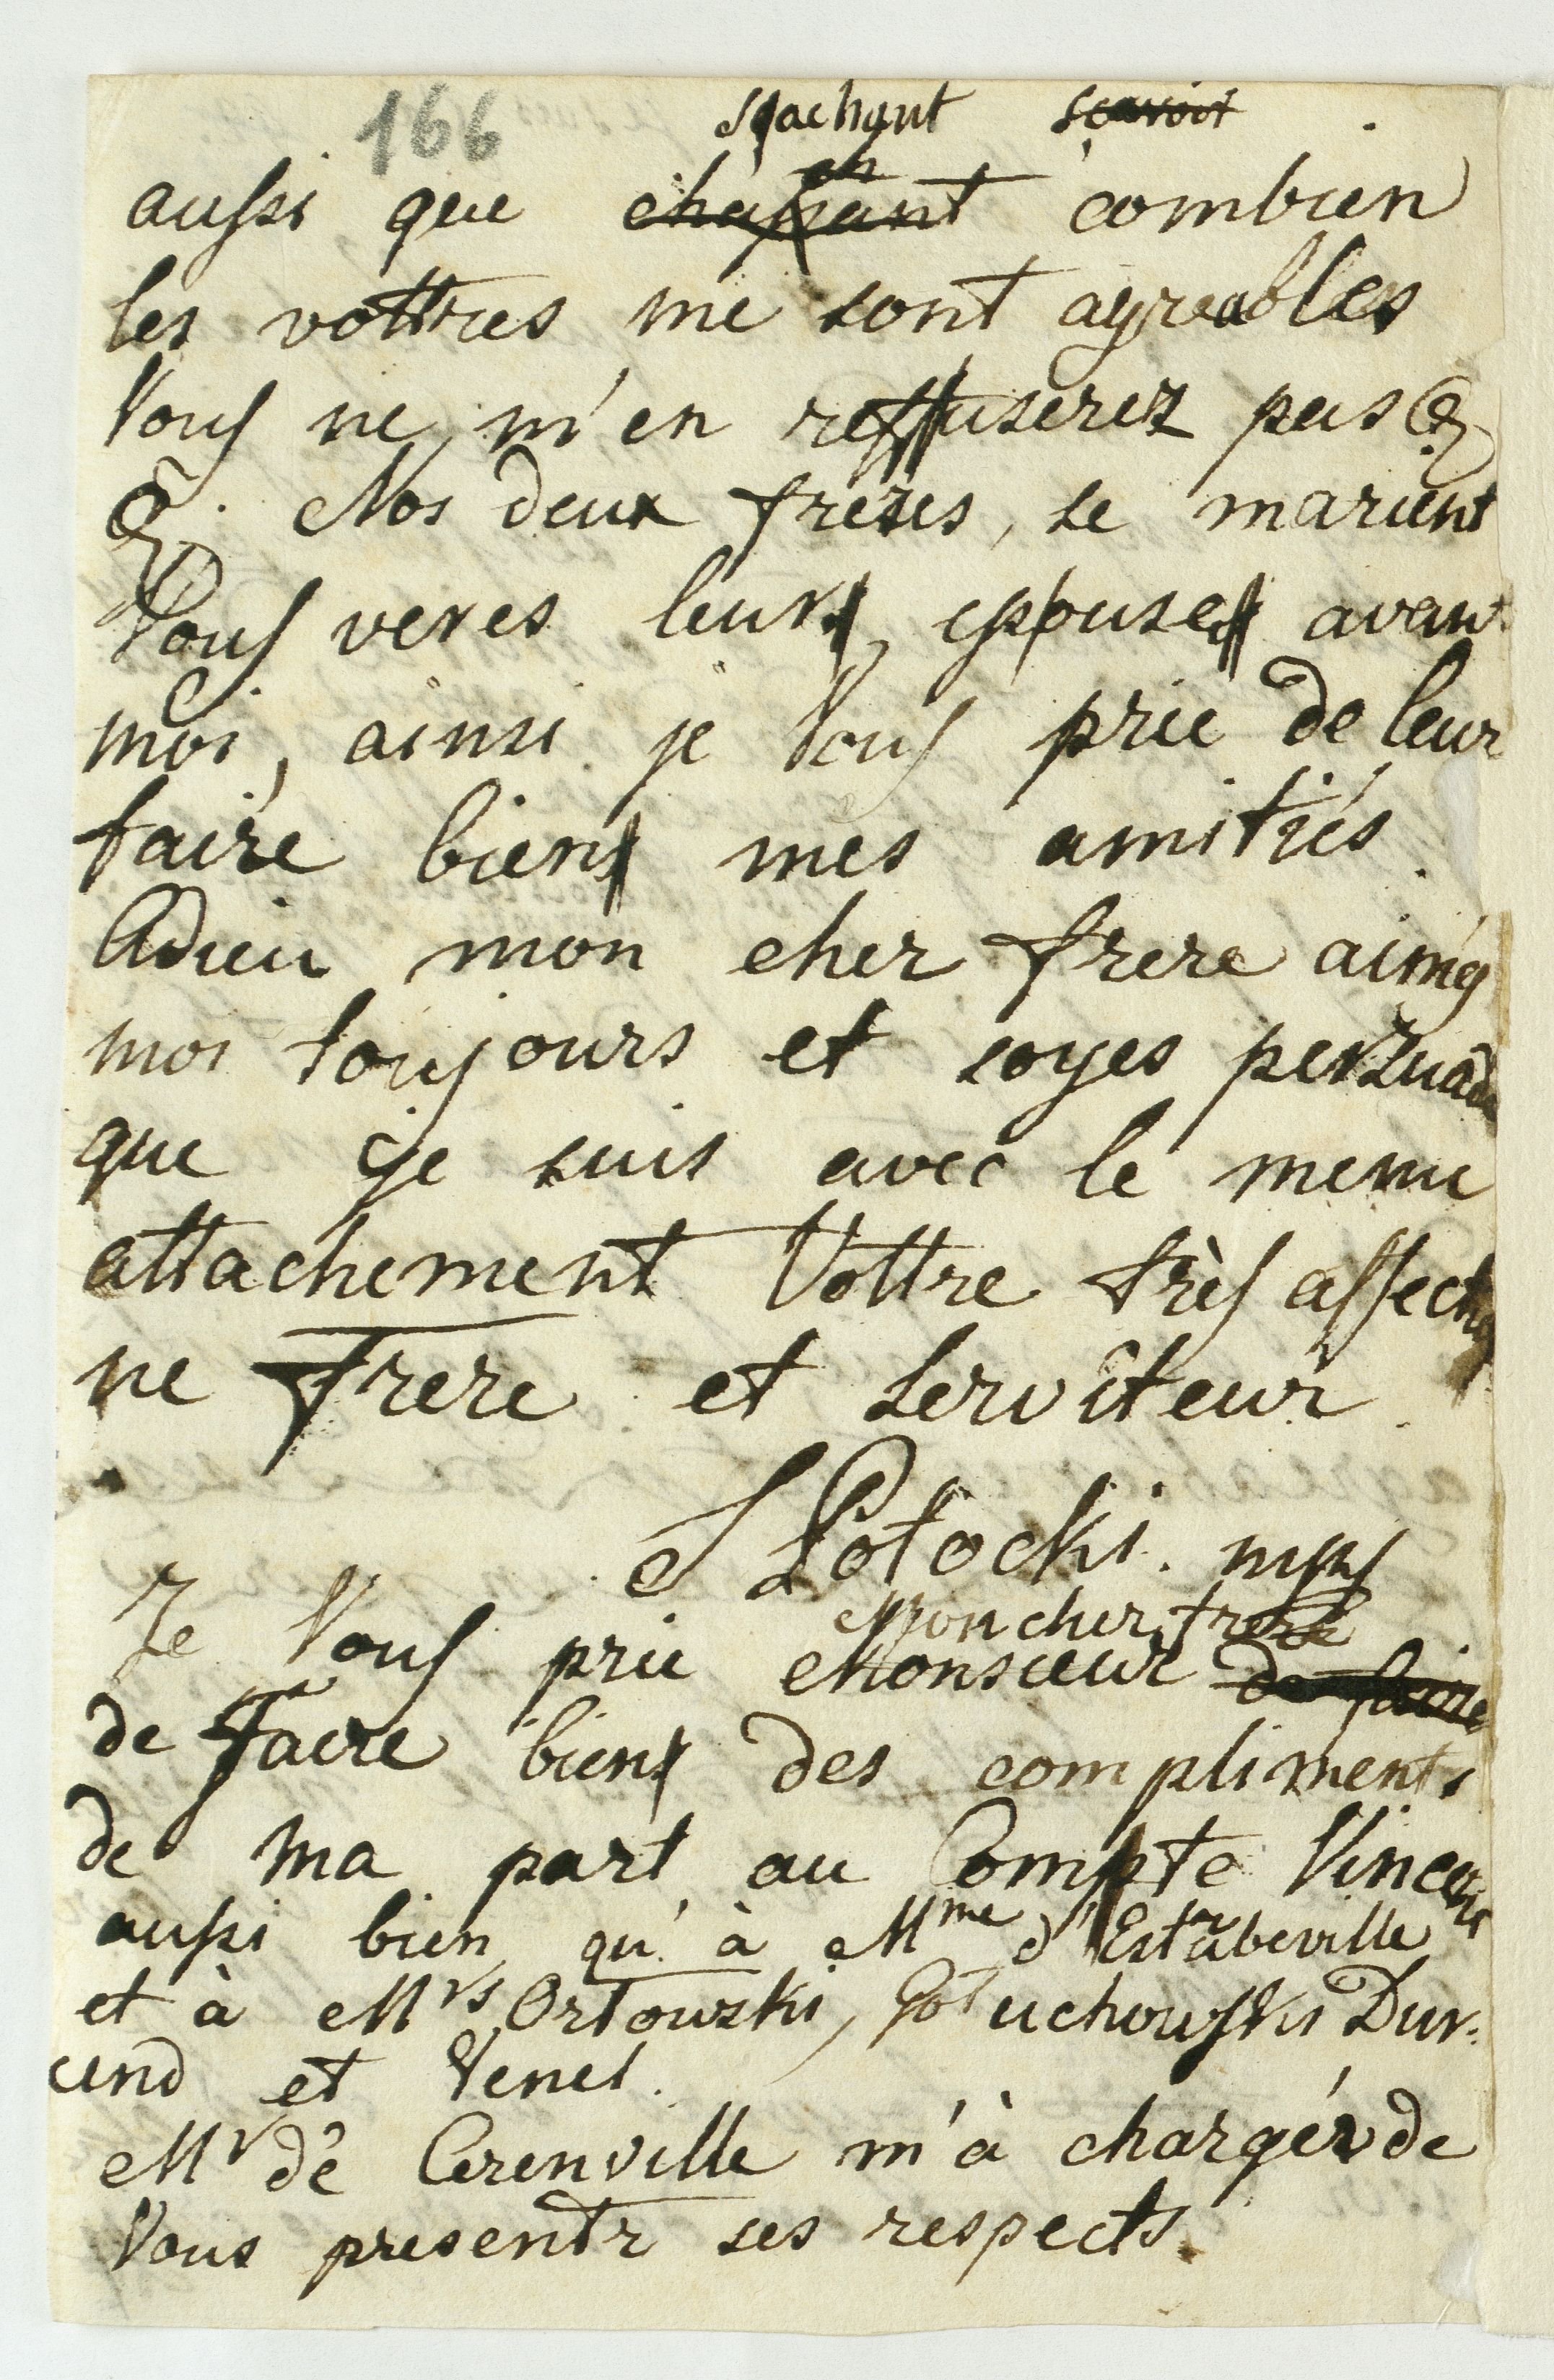 166
sachant scavoir
aussi que chapant combien
les vottres me sont agreables
Vous ne m'en reffuserez pas &
&. Nos deux freres, se marient
Vous veres leurs epouses avant
moi, ainsi je Vous prie de leur
faire bien mes amitiés.
Adieu mon cher frere aimés
moi toujours et soyes perzuadé
que je suis avec le meme
attachement Vottre très affectio
ne frere et serviteur.
S Potocki. mps
Mon cher frere
Je Vous prie Monsieur de faire
de faire bien des compliments
de ma part au Compte Vincent
aussi bien qu'à Mme d'Estabeville
et à Mrs Ortowski, Gotuchowski Dur-
and et Venel.
Mr de Cerenville m'à chargér de
Vous presentr ses respects.